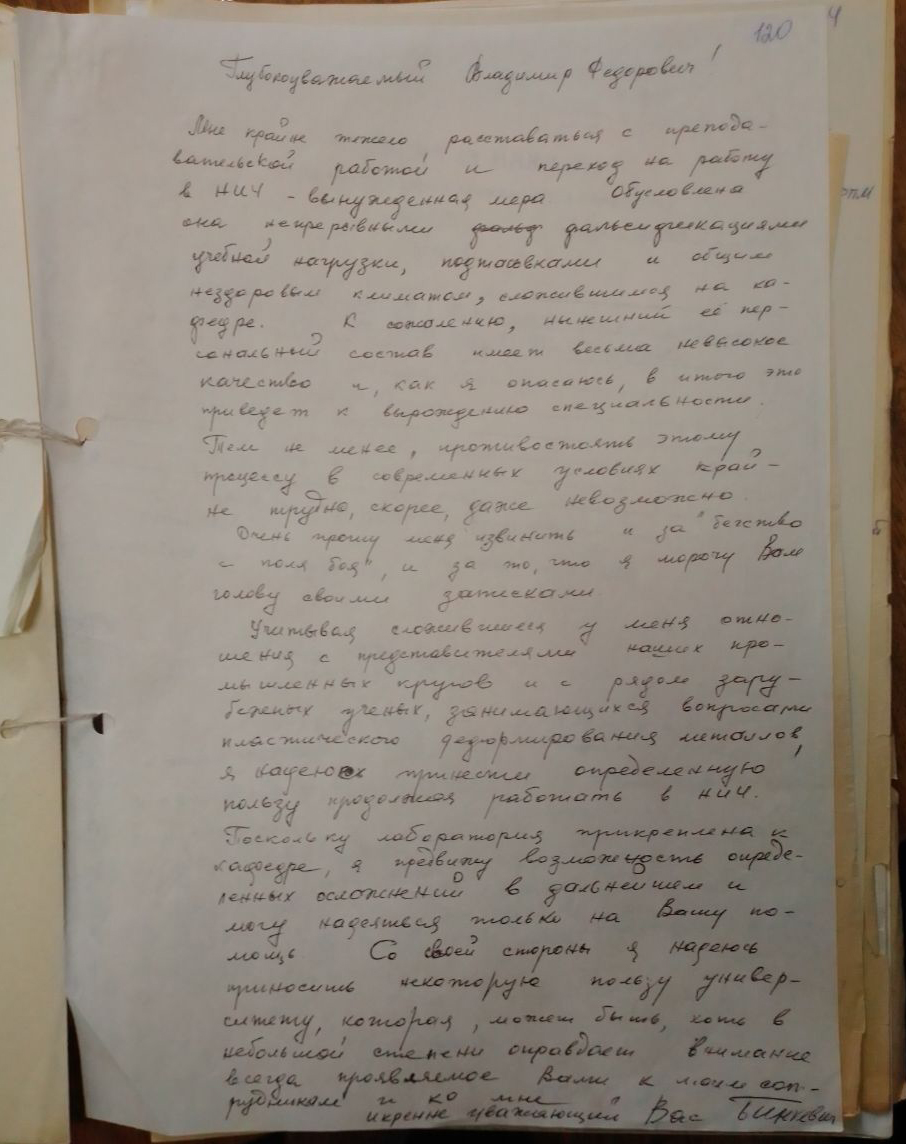 120
4
Глубокоуважаемый Владимир Федорович!
Мне крайне тяжело расставаться с препода-
вательской работой и переход на работу
в НИЧ - вынужденная мера Обусловлена
она непрерывными фальсификациями
учебной нагрузки, подтасовками и общим
нездоровым климатом, сложившимся на ка-
федре. К сожалению, нынешний её пер-
сональный состав имеет весьма невысокое
качество и, как я опасаюсь, в итоге это
приведет к вырождению специальности.
Тем не менее, противостоять этому
процессу в современных условиях край-
не трудно, скорее, даже невозможно.
Очень прошу меня извинить и за "бегство
с поля боя", и за то, что я морочу Вам
голову своими записками
Учитывая сложившиеся у меня отно-
шения с представителями наших про-
мышленных кругов и с рядом зару-
бежных ученых, занимающихся вопросами
пластического деформирования металлов,
я надеюсь принести определенную
пользу продолжая работать в НИЧ.
Поскольку лаборатория прикреплена к
кафедре, я предвижу возможность опреде-
ленных осложнений в дальнейшем и
могу надеяться только на Вашу по-
мощь. Со своей стороны я надеюсь
приносить некоторую пользу универ-
ситету, которая, может быть, хоть в
небольшой степени оправдает внимание
всегда проявляемое Вами к моим сот-
рудникам и ко мне
искренне уважающий Вас Бинкевич